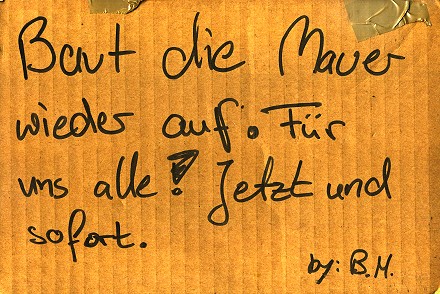 Baut die Mauer
wieder auf. Für
uns alle! Jetzt und
sofort.
by: B.M.